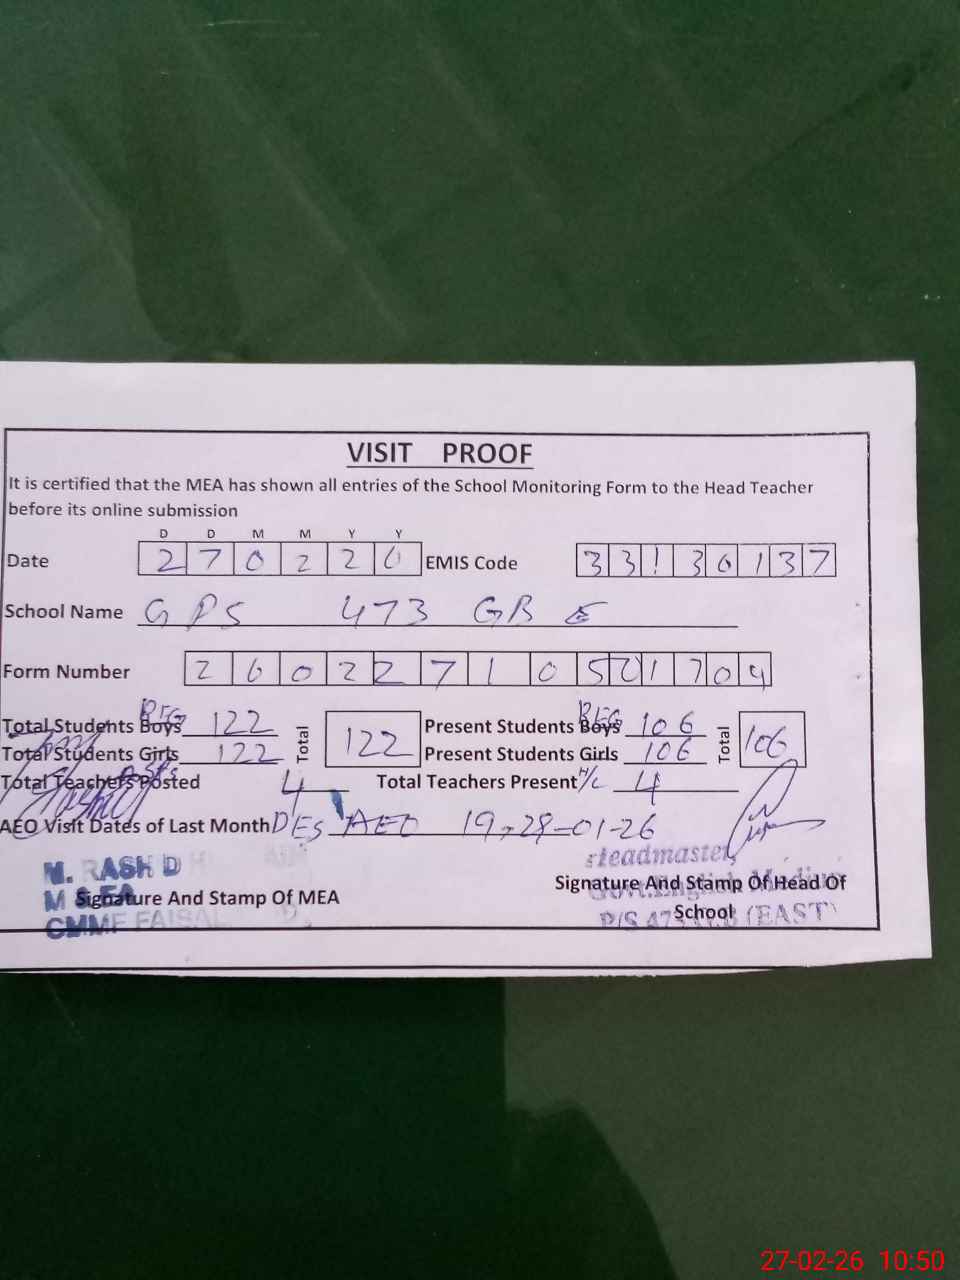 VISIT PROOF
It is certified that the MEA has shown all entries of the School Monitoring Form to the Head Teacher
before its online submission
D D M M Y Y
Date 2 7 0 2 2 6 EMIS Code 3 3 1 3 0 1 3 7
School Name GPS 473 GB E
Form Number 2 6 0 2 2 7 1 0 5 0 1 7 0 4
Total Students Boys REG 122 Total 122 Present Students Boys REG 106 Total 106
Total Students Girls 122 Present Students Girls 106
Total Teachers Posted 4 Total Teachers Present H/C 4
AEO Visit Dates of Last Month AEO 19, 28-01-26
M. RASH D
M & EA
Signature And Stamp Of MEA
CMMF FAISAL
Headmaster
Signature And Stamp Of Head Of
School
Govt. English Medium
P/S 473 G.B (EAST)
27-02-26 10:50